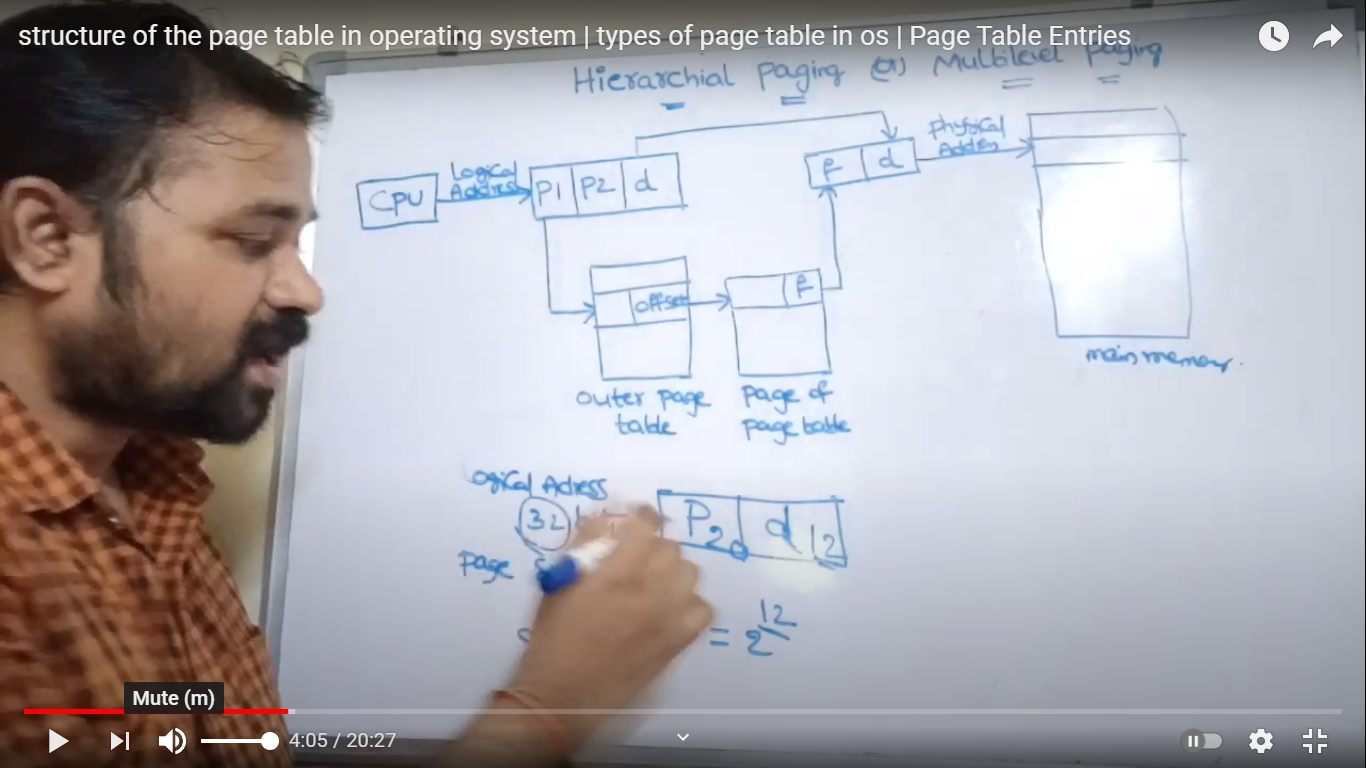 structure of the page table in operating system | types of page table in os | Page Table Entries
Hierarchial paging (or) Multilevel paging
CPU
Logical
Address
P1 P2 d
f d
physical
Addres
offset
f
outer page
table
page of
page table
main memory.
ogical Adress
32
P 20 d 12
page
= 2^12
Mute (m)
4:05 / 20:27